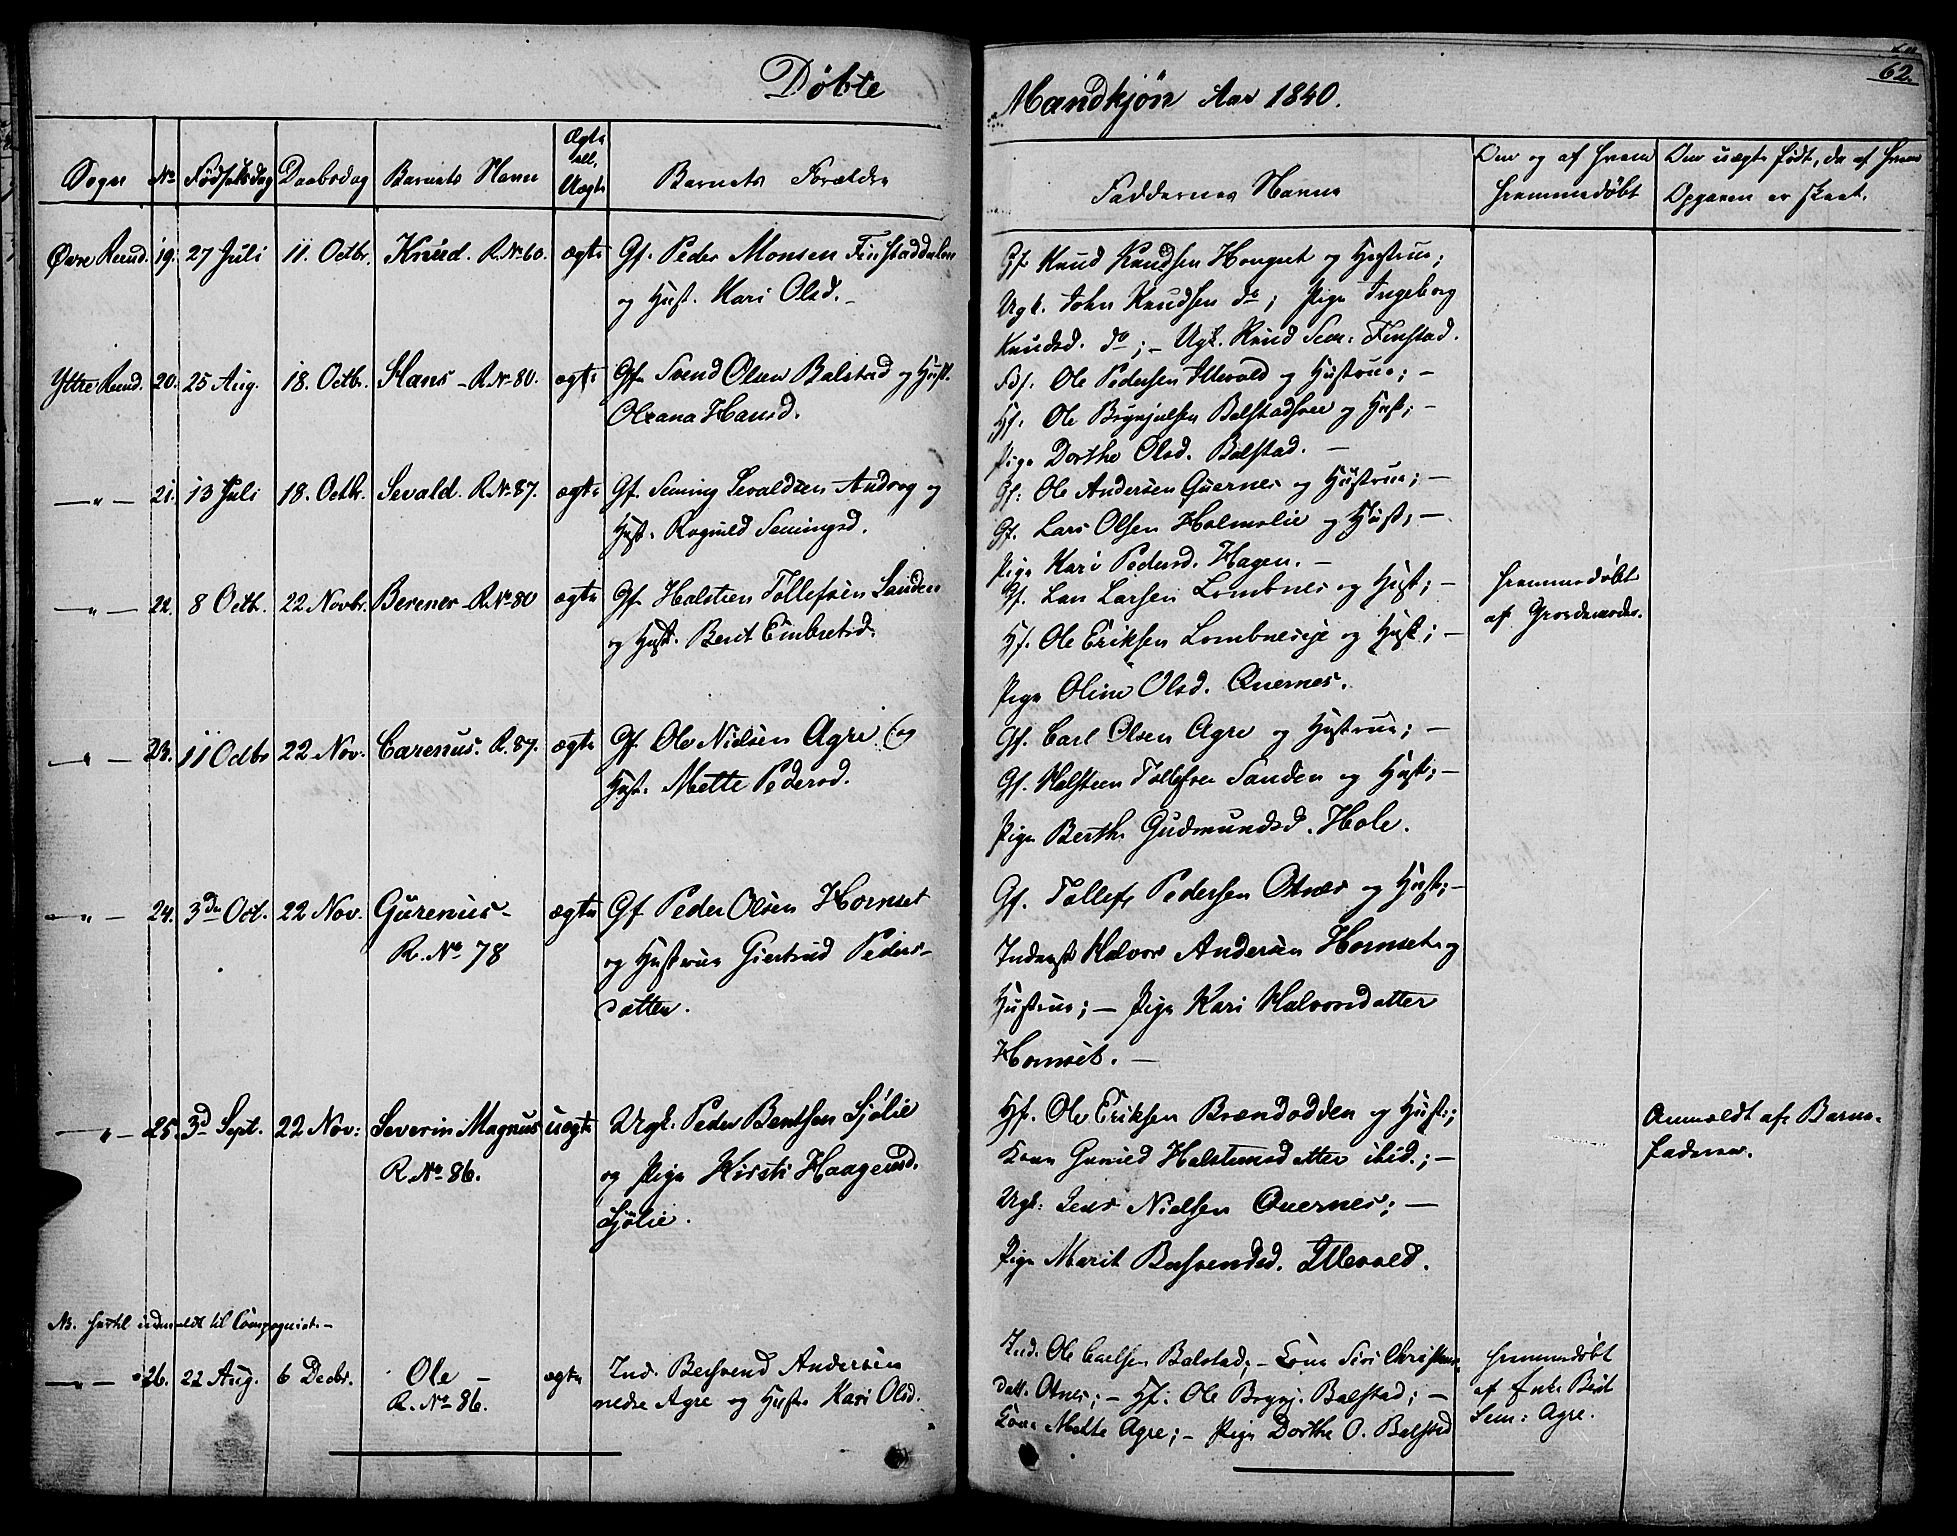 Døbte
Mandkjøn Aar 1840.
62.
Sogn No Fødselsdag Daabsdag Barnets Navn Ægte ell. Uægte Barnets Forældre
Faddernes Navne Om og af hvem hjemmedøbt Om uægte født, da af hvem Opgaven er skeet.
Øvre Rend. 19. 27 Juli 11. Octbr. Knud. R.No 60. ægte Gf. Peder Monsen Finstaddalen
og Hust. Kari Olsd. -
Gf. Knud Knudsen Hornset og Hustrue;
Ugk. John Knudsen do; Pige Ingeborg
Knudsd. do; - Ugk. Knud Sem: Finstad.
Yttre Rend. 20. 25 Aug. 18. Octb. Hans - R.No 80. ægte Gfm Svend Olsen Balstad og Hust.
Oleana Hansd.
Ole Pedersen Illevold og Hustrue; -
Hf. Ole Brynjulsen Balstadhoe og Hust; -
Pige Dorthe Olsd. Balstad. -
- " - 21. 13 Juli 18. Octb. Sevald. R.No 87. ægte Gf. Seming Sevaldsen Androg og
Hust. Ragnild Semingsd.
Gf: Ole Andersen Quernes og Hustrue; -
Gf. Lars Olsen Holmolie og Hust; -
Pige Kari Pedersd. Hagen. -
- " - 22. 8 Octb. 22 Novbr. Berener - R.No 80 ægte Gf. Halsteen Tollefsen Sanden
og Hust. Berit Embretsd.
Gf. Lars Larsen Lombnes og Hust; -
Hf. Ole Eriksen Lombneseje og Hust; -
Pige Oline Olsd. Quernes.
hjemmedøbt
af Gjordemoder.
- " - 23. 11 Octbr 22 Nov. Carenus. R. 87. ægte Gf. Ole Nielsen Agre og
Hust. Mette Pedersd.
Gf. Carl Olsen Agre og Hustrue; -
Gf. Halsteen Tollefsen Sanden og Hust; -
Pige Berthe Gudmundsd. Hole.
- " - 24. 3de Oct. 22 Nov. Gurenus - ægte Gf Peder Olsen Hornset
R. No 78
og Hustrue Giertrud Peders-
datter.
Gf. Tollef Pedersen Otnes og Hust; -
Inderst Halvor Andersen Hornset og
Hustrue; - Pige Kari Halvorsdatter
Hornset. -
- " - 25. 3d Sept. 22 Nov: Severin Magnus uegte Ugk. Peder Bentsen Sjølie
R. No 86.
og Pige Kirsti Haagensd.
Sjølie.
Hf. Ole Eriksen Brændodden og Hust;
Kone Gunild Halstensdatter ibid.; -
Ugk: Jens Nielsen Quernes; -
Pige Marit Bersvendsd. Illevold.
Anmeldt af Barne-
faderen.
NB. hertil indmeldt til Compagniet. -
- " - 26. 22 Aug. 6 Decbr. Ole - ægte Ind. Bersvend Andersen
R. No 86.
nedre Agre og Hustr. Kari Olsd.
Ind. Ole Carlsen Balstad; - Kone Siri Christens
datt. Otnes; - Hf: Ole Brynj. Balstad; -
Kone Mette Agre; - Pige Dorthe O. Balstad
hjemmedøbt
af Enke Berit
Sem: Agre.